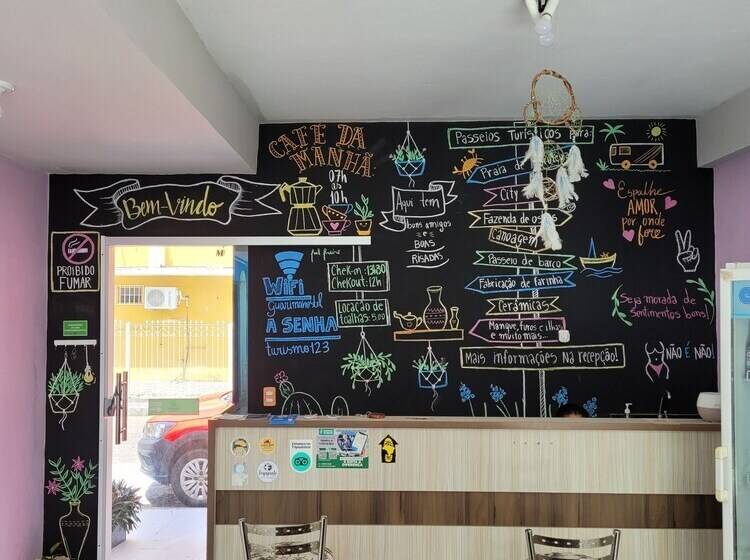 CAFÉ DA
MANHÃ
07h
às
10h
Bem-Vindo
PROIBIDO
FUMAR
WiFi
A SENHA
turismo123
Chek-in: 13h30
Chekout: 12h
Locação de
toalhas: 5,00
Aqui tem
bons amigos
e
BOAS
RISADAS
Passeios Turísticos para:
Praia de
City
Fazenda de
Canoagem
Passeio de barco
Fabricação de Farinha
Cerâmicas
Mangue, furos e ilhas
e muito mais...
Mais informações na recepção!
Espalhe
AMOR,
por onde
for
Seja morada de
Sentimentos Bons!
NÃO É NÃO!